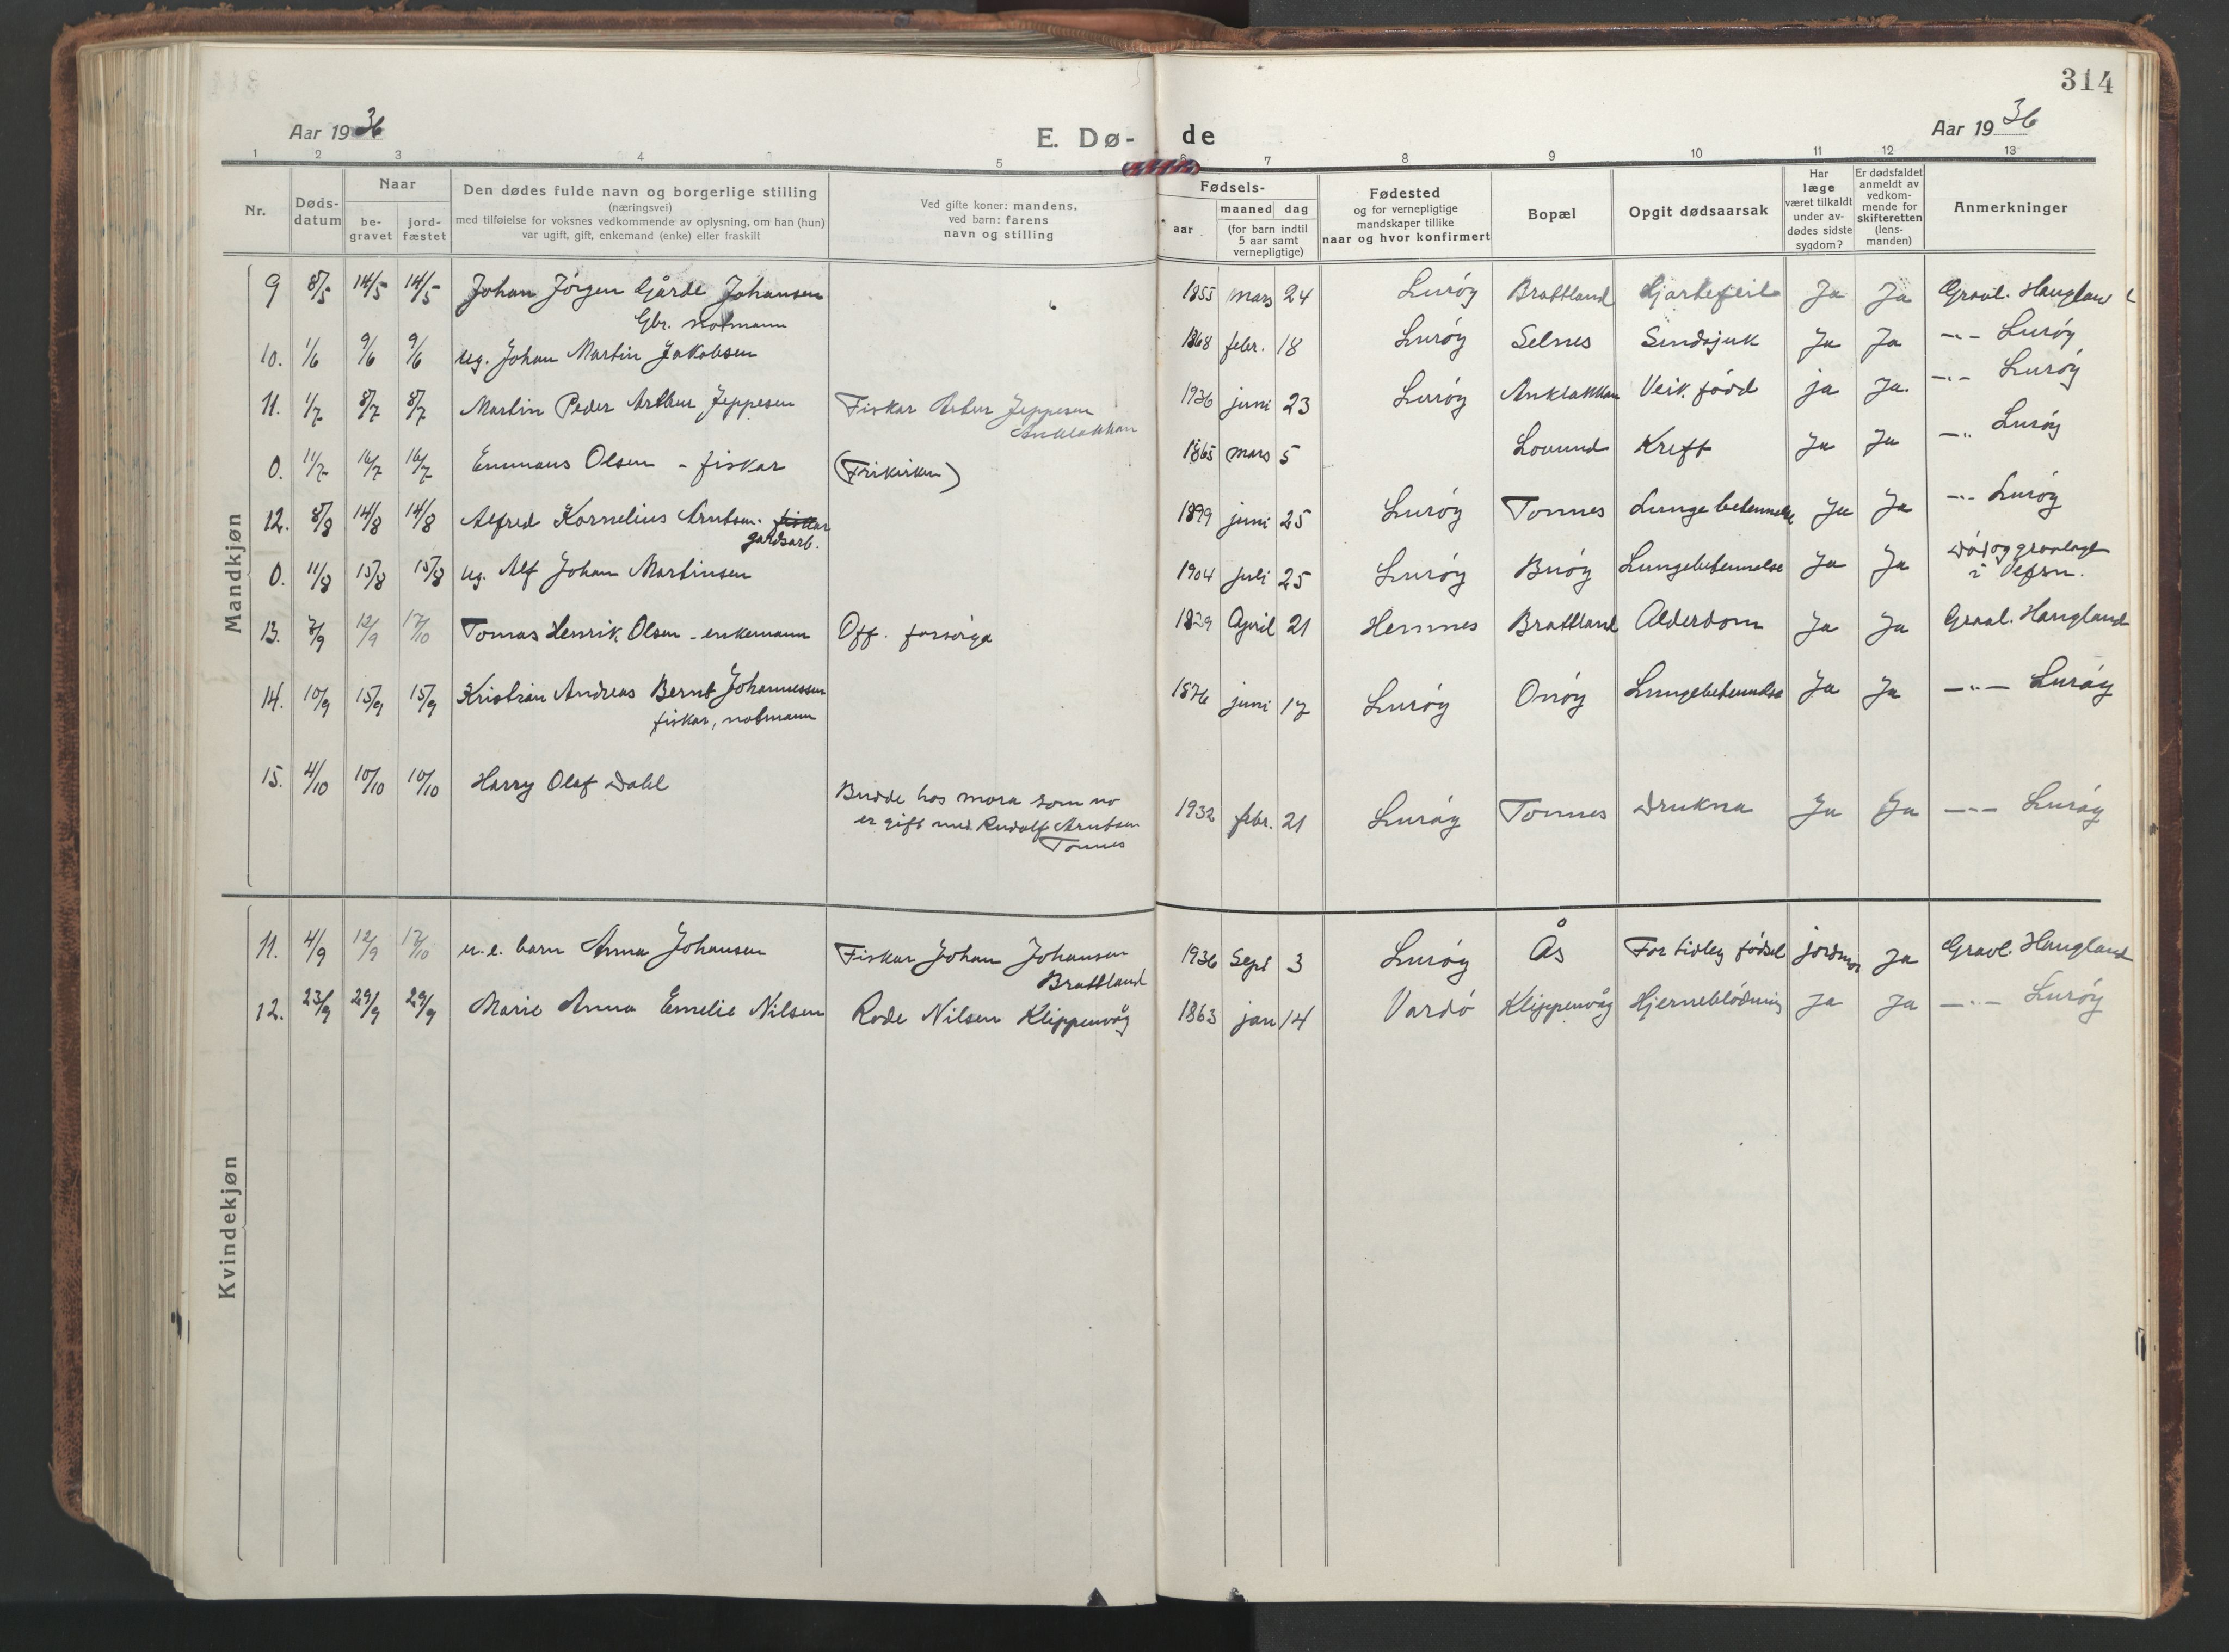 314
Aar 1936
E. Dø-
de
Aar 1936
1 2 3 4 5 6 7 8 9 10 11 12 13
Nr.
Døds-
datum
Naar
be-
gravet
jord-
fæstet
Den dødes fulde navn og borgerlige stilling
(næringsvei)
med tilføielse for voksnes vedkommende av oplysning, om han (hun)
var ugift, gift, enkemand (enke) eller fraskilt
Ved gifte koner: mandens,
ved barn: farens
navn og stilling
Fødsels-
aar
maaned dag
(for barn indtil
5 aar samt
vernepligtige)
Fødested
og for vernepligtige
mandskaper tillike
naar og hvor konfirmert
Bopæl
Opgit dødsaarsak
Har
læge
været tilkaldt
under av-
dødes sidste
sygdom?
Er dødsfaldet
anmeldt av
vedkom-
mende for
skifteretten
(lens-
manden)
Anmerkninger
Mandkjøn
9 8/5 14/5 14/5 Johan Jörgen Gårde Johansen 1855 mars 24 Luröy Brattland Hjartefeil Ja Ja Gravl. Haugland
Gbr. notmann
10. 1/6 9/6 9/6 ug. Johan Martin Jakobsen 1868 febr. 18 Luröy Selnes Sindsjuk Ja Ja -"- Luröy
11. 1/7 8/7 8/7 Martin Peder Arthur Jeppesen Fiskar Artur Jeppesen 1936 juni 23 Luröy Anklakkan Veik. född ja ja. -"- Luröy
Anklakkan
0. 11/7 16/7 16/7 Emmaus Olsen - fiskar (Frikirken) 1865 mars 5 Lovund Kreft Ja Ja -"- Luröy
12. 8/8 14/8 14/8 Alfred Kornelius Arntsen. fiskar 1899 juni 25 Luröy Tonnes Lungebetennelse Ja Ja -"- Luröy
gardsarb.
0. 11/8 15/8 15/8 ug. Alf Johan Martinsen 1904 juli 25 Luröy Buöy Lungebetennelse Ja Ja Död og gravlagt
i Vefsn.
13. 3/9 12/9 17/10 Tomas Henrik Olsen - enkemann Off. forsörga 1829 April 21 Hemnes Brattland Alderdom Ja Ja Gravl. Haugland
14. 10/9 15/9 15/9 Kristian Andreas Bernt Johannessen 1876 juni 17 Luröy Onöy Lungebetennelse Ja Ja -"- Luröy
fiskar, notmann
15. 4/10 10/10 10/10 Harry Olaf Dahl Budde hos mora som no 1932 febr. 21 Luröy Tonnes Drukna Ja Ja -"- Luröy
er gift med Rudolf Arntsen
Tonnes
Kvindekjøn
11. 4/9 12/9 17/10 u.e. barn Anna Johansen Fiskar Johan Johansen 1936 Sept 3 Luröy Ås For tidleg födsel jordmor Ja Gravl. Haugland
Brattland
12. 23/9 29/9 29/9 Marie Anna Emelie Nilsen Rode Nilsen Klippenvåg 1863 jan 14 Vardö Klippenvåg Hjerneblödning Ja Ja -"- Luröy